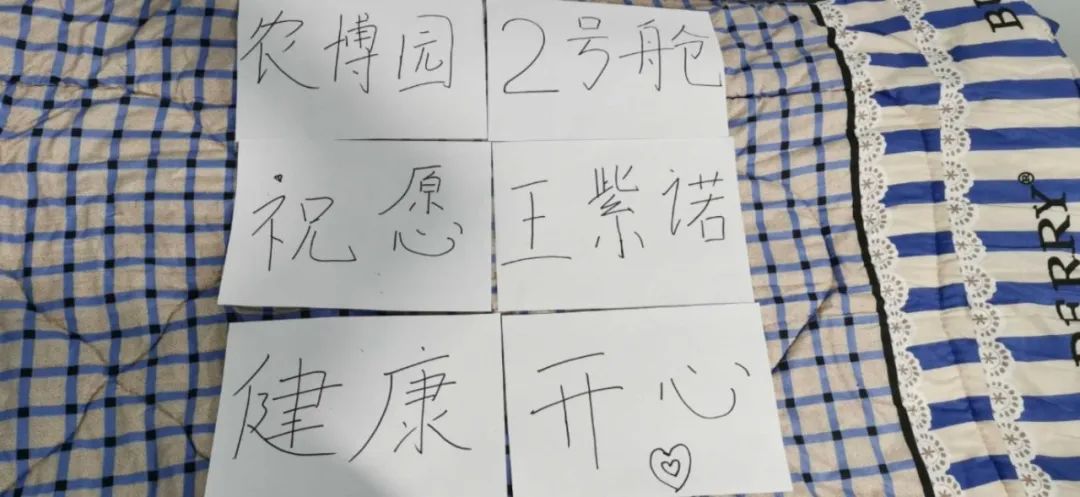 农博园 2号舱
祝愿 王紫诺
健康 开心
BERRY®